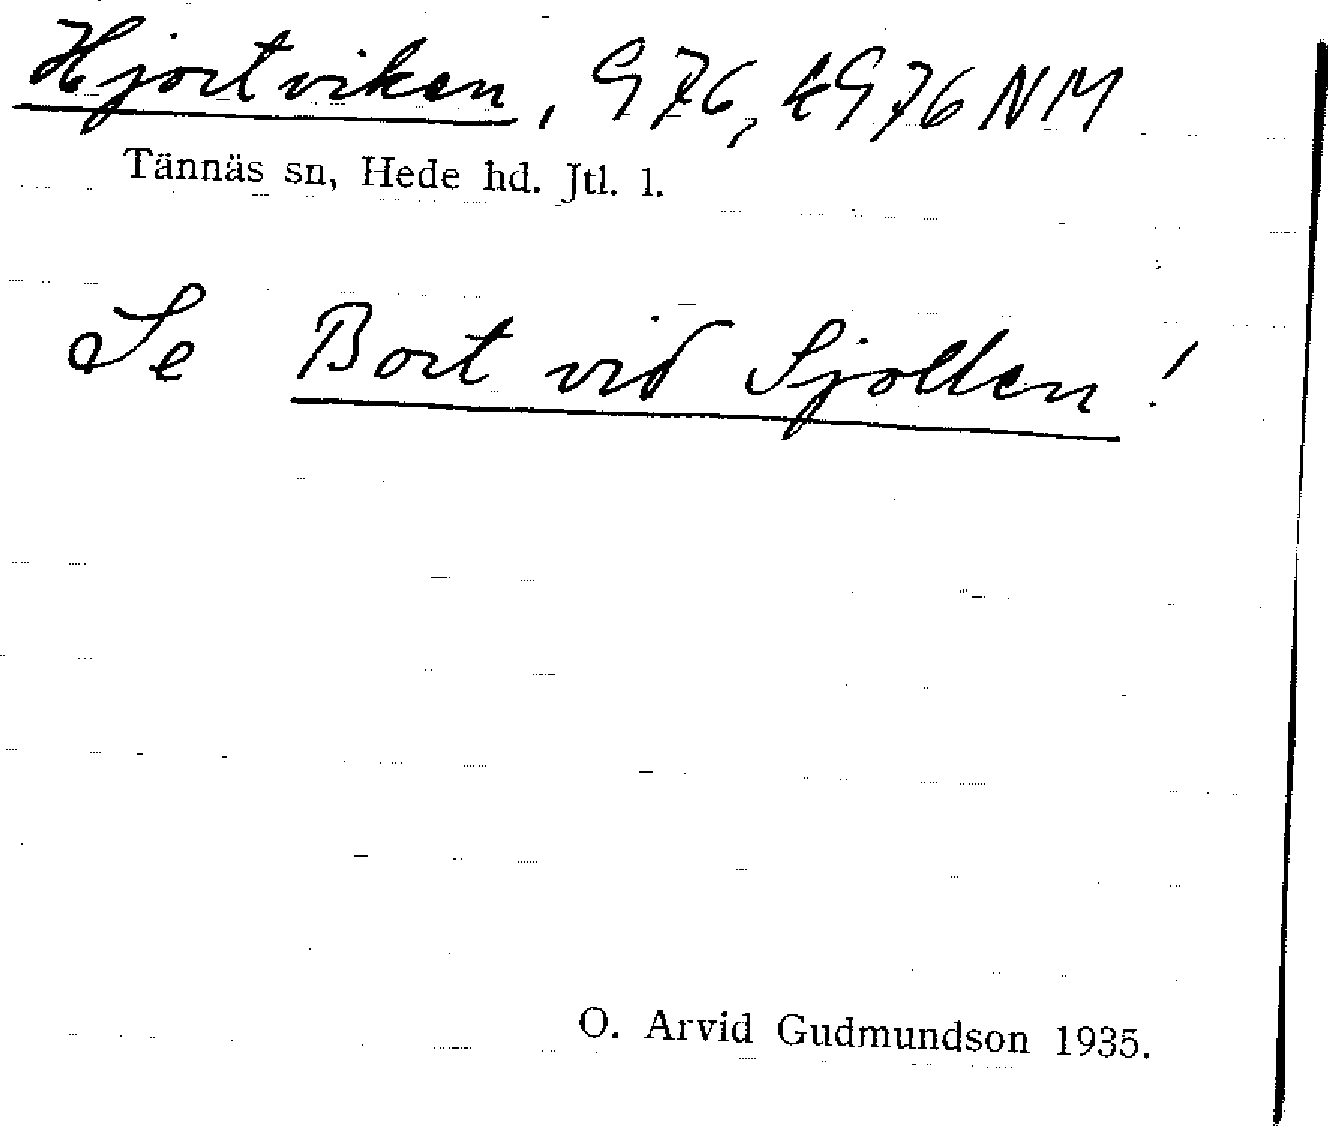 Hjortviken, G76, äG76NM
Tännäs sn, Hede hd. Jtl. l.
Se Bort vid Sjollen!
O. Arvid Gudmundson 1935.